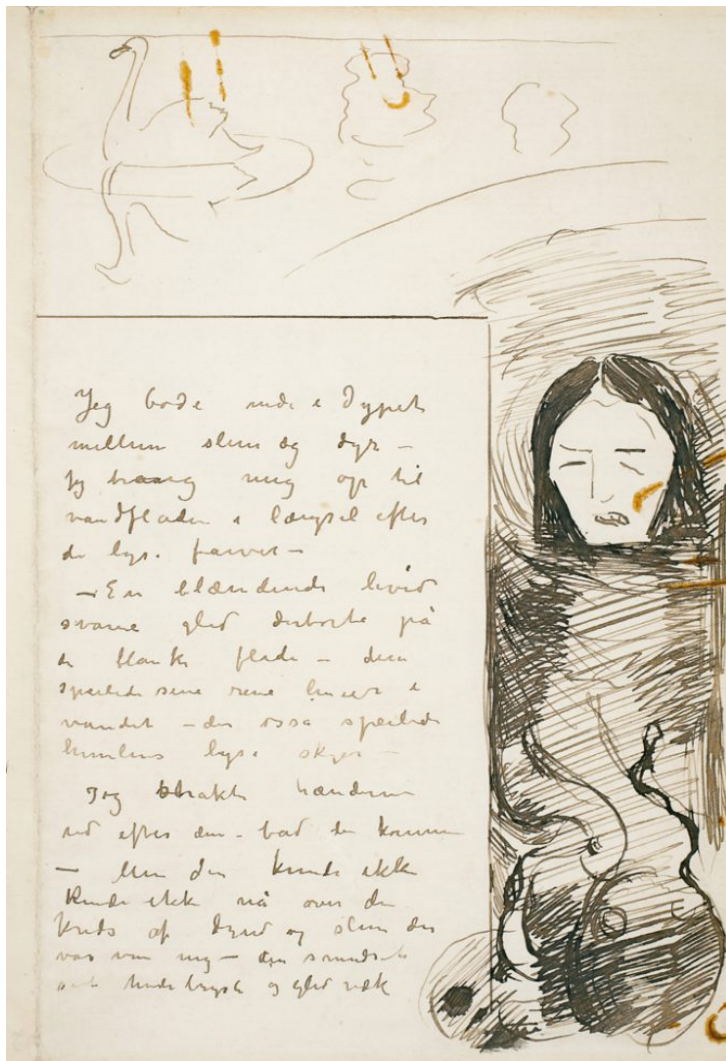 Jeg bode nede i Dypet
mellem slim og dyr –
Jeg trang mig op til
vandfladen i længsel efter
de lyse farver –
– En blændende hvid
svane gled derborte på
de blanke flade – den
speilede sine rene linier i
vandet – der osså speilede
himlens lyse skyer –
Jeg strakte hænderne
ud efter den – bad den komme
– Men den kunde ikke
Kunde ikke nå over den
kreds af dynd og slim der
var om mig – den smudsede
sit hvide bryst og gled væk